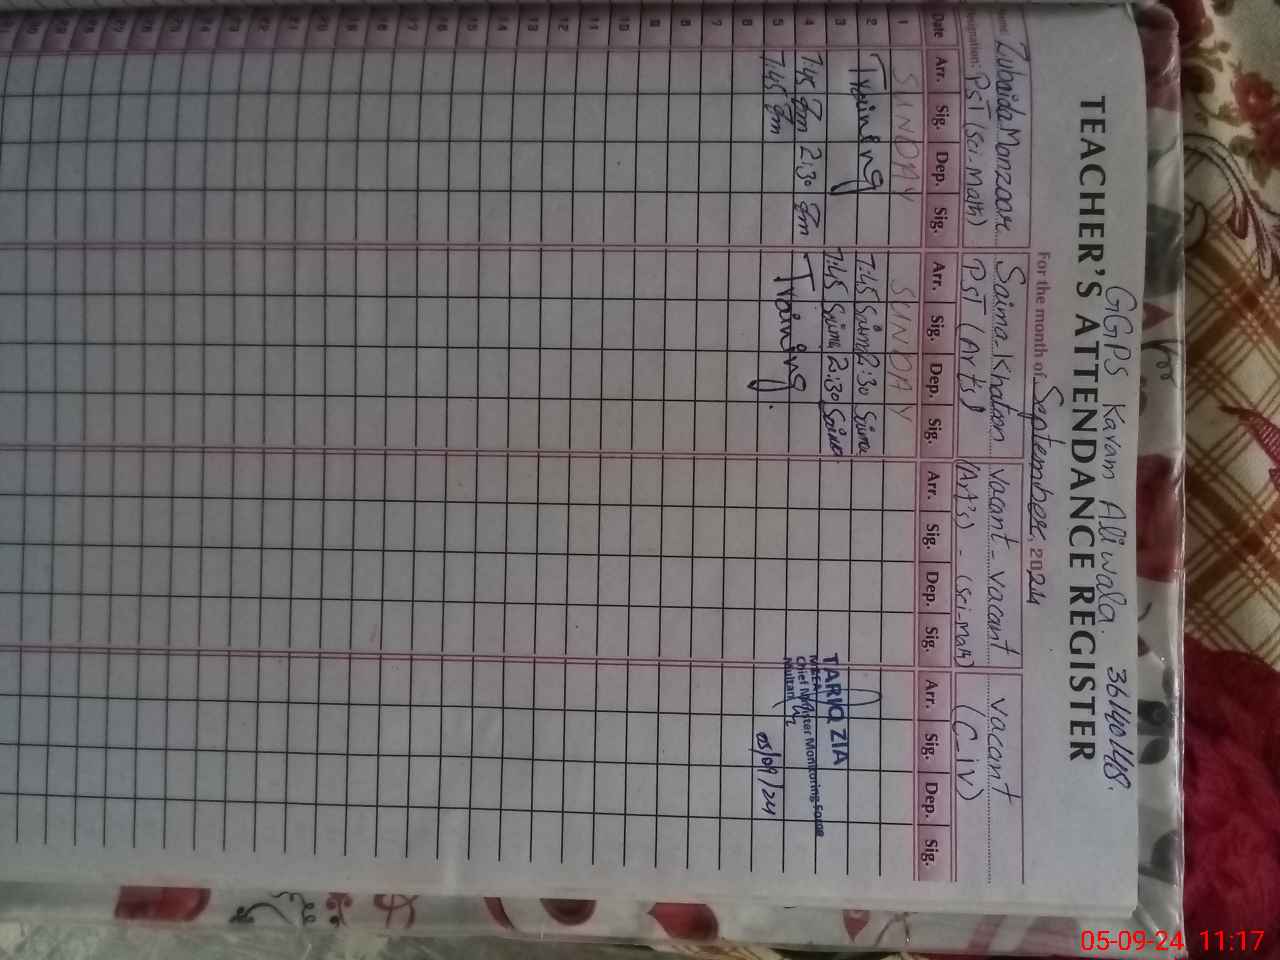 GGPS Karam Aliwala. 36140148.
TEACHER'S ATTENDANCE REGISTER
For the month of September, 2024
Name: Zubaida Manzoor Saima Khatoon vacant - vacant vacant
Designation: PST (Sci-Math) PST (Arts) (Art's) - (Sci-Math) (C-iv)
Date Arr. Sig. Dep. Sig. Arr. Sig. Dep. Sig. Arr. Sig. Dep. Sig. Arr. Sig. Dep. Sig.
1 SUNDAY SUNDAY
2 Training 7:45 Saima 2:30 Saima
3 7:45 Saima 2:30 Saima
4 7:45 2:30 Training
5 7:45
6
7
8
9
10
11
12
13
14
15
16
17
18
19
20
21
22
23
24
25
26
27
28
29
30
TARIQ ZIA
MEA
Chief Minister Monitoring Force
Multan
05/09/24
05-09-24 11:17